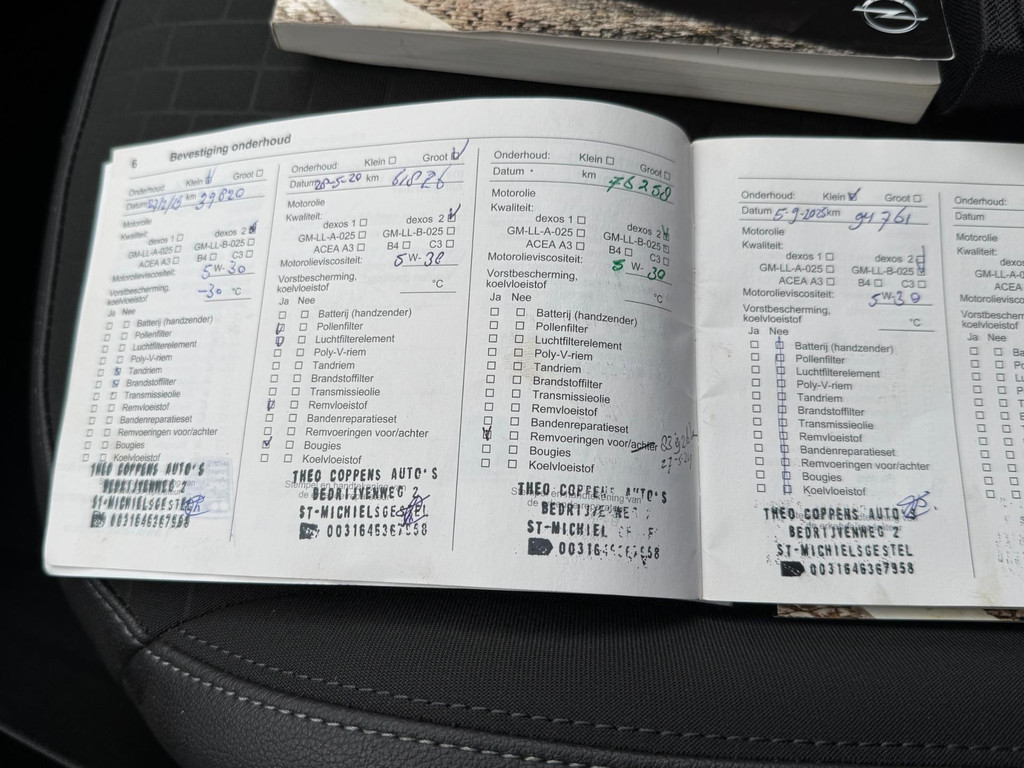 6 Bevestiging onderhoud
Onderhoud: Klein Groot
Datum km 39820
Motorolie
Kwaliteit:
dexos 1 dexos 2
GM-LL-A-025 GM-LL-B-025
ACEA A3 B4 C3
Motorolieviscositeit:
5 W-30
Vorstbescherming,
koelvloeistof -30 °C
Ja Nee
Batterij (handzender)
Pollenfilter
Luchtfilterelement
Poly-V-riem
Tandriem
Brandstoffilter
Transmissieolie
Remvloeistof
Bandenreparatieset
Remvoeringen voor/achter
Bougies
Koelvloeistof
THEO COPPENS AUTO'S
BEDRIJVENWEG 2
ST-MICHIELSGESTEL
0031646367958
Onderhoud: Klein Groot
Datum 28-5-20 km
Motorolie
Kwaliteit:
dexos 1 dexos 2
GM-LL-A-025 GM-LL-B-025
ACEA A3 B4 C3
Motorolieviscositeit: 5 W-30
Vorstbescherming,
koelvloeistof °C
Ja Nee
Batterij (handzender)
Pollenfilter
Luchtfilterelement
Poly-V-riem
Tandriem
Brandstoffilter
Transmissieolie
Remvloeistof
Bandenreparatieset
Remvoeringen voor/achter
Bougies
Koelvloeistof
THEO COPPENS AUTO'S
Stempel en handtekening van
BEDRIJVENWEG 2
ST-MICHIELSGESTEL
0031646367958
Onderhoud: Klein Groot
Datum km 76258
Motorolie
Kwaliteit:
dexos 1 dexos 2
GM-LL-A-025 GM-LL-B-025
ACEA A3 B4 C3
Motorolieviscositeit: 5 W-30
Vorstbescherming,
koelvloeistof °C
Ja Nee
Batterij (handzender)
Pollenfilter
Luchtfilterelement
Poly-V-riem
Tandriem
Brandstoffilter
Transmissieolie
Remvloeistof
Bandenreparatieset
Remvoeringen voor/achter
Bougies
Koelvloeistof
THEO COPPENS AUTO'S
Stempel en handtekening van
0031646367958
Onderhoud: Klein Groot
Datum 5-9-2023 km 94761
Motorolie
Kwaliteit:
dexos 1 dexos 2
GM-LL-A-025 GM-LL-B-025
ACEA A3 B4 C3
Motorolieviscositeit: 5 W-30
Vorstbescherming,
koelvloeistof °C
Ja Nee
Batterij (handzender)
Pollenfilter
Luchtfilterelement
Poly-V-riem
Tandriem
Brandstoffilter
Transmissieolie
Remvloeistof
Bandenreparatieset
Remvoeringen voor/achter
Bougies
Koelvloeistof
THEO COPPENS AUTO'S
BEDRIJVENWEG 2
ST-MICHIELSGESTEL
0031646367958
Onderhoud:
Datum
Motorolie
Kwaliteit:
GM-LL-A
ACEA
Motorolievisc
Vorstbescherm
koelvloeistof
Ja Nee